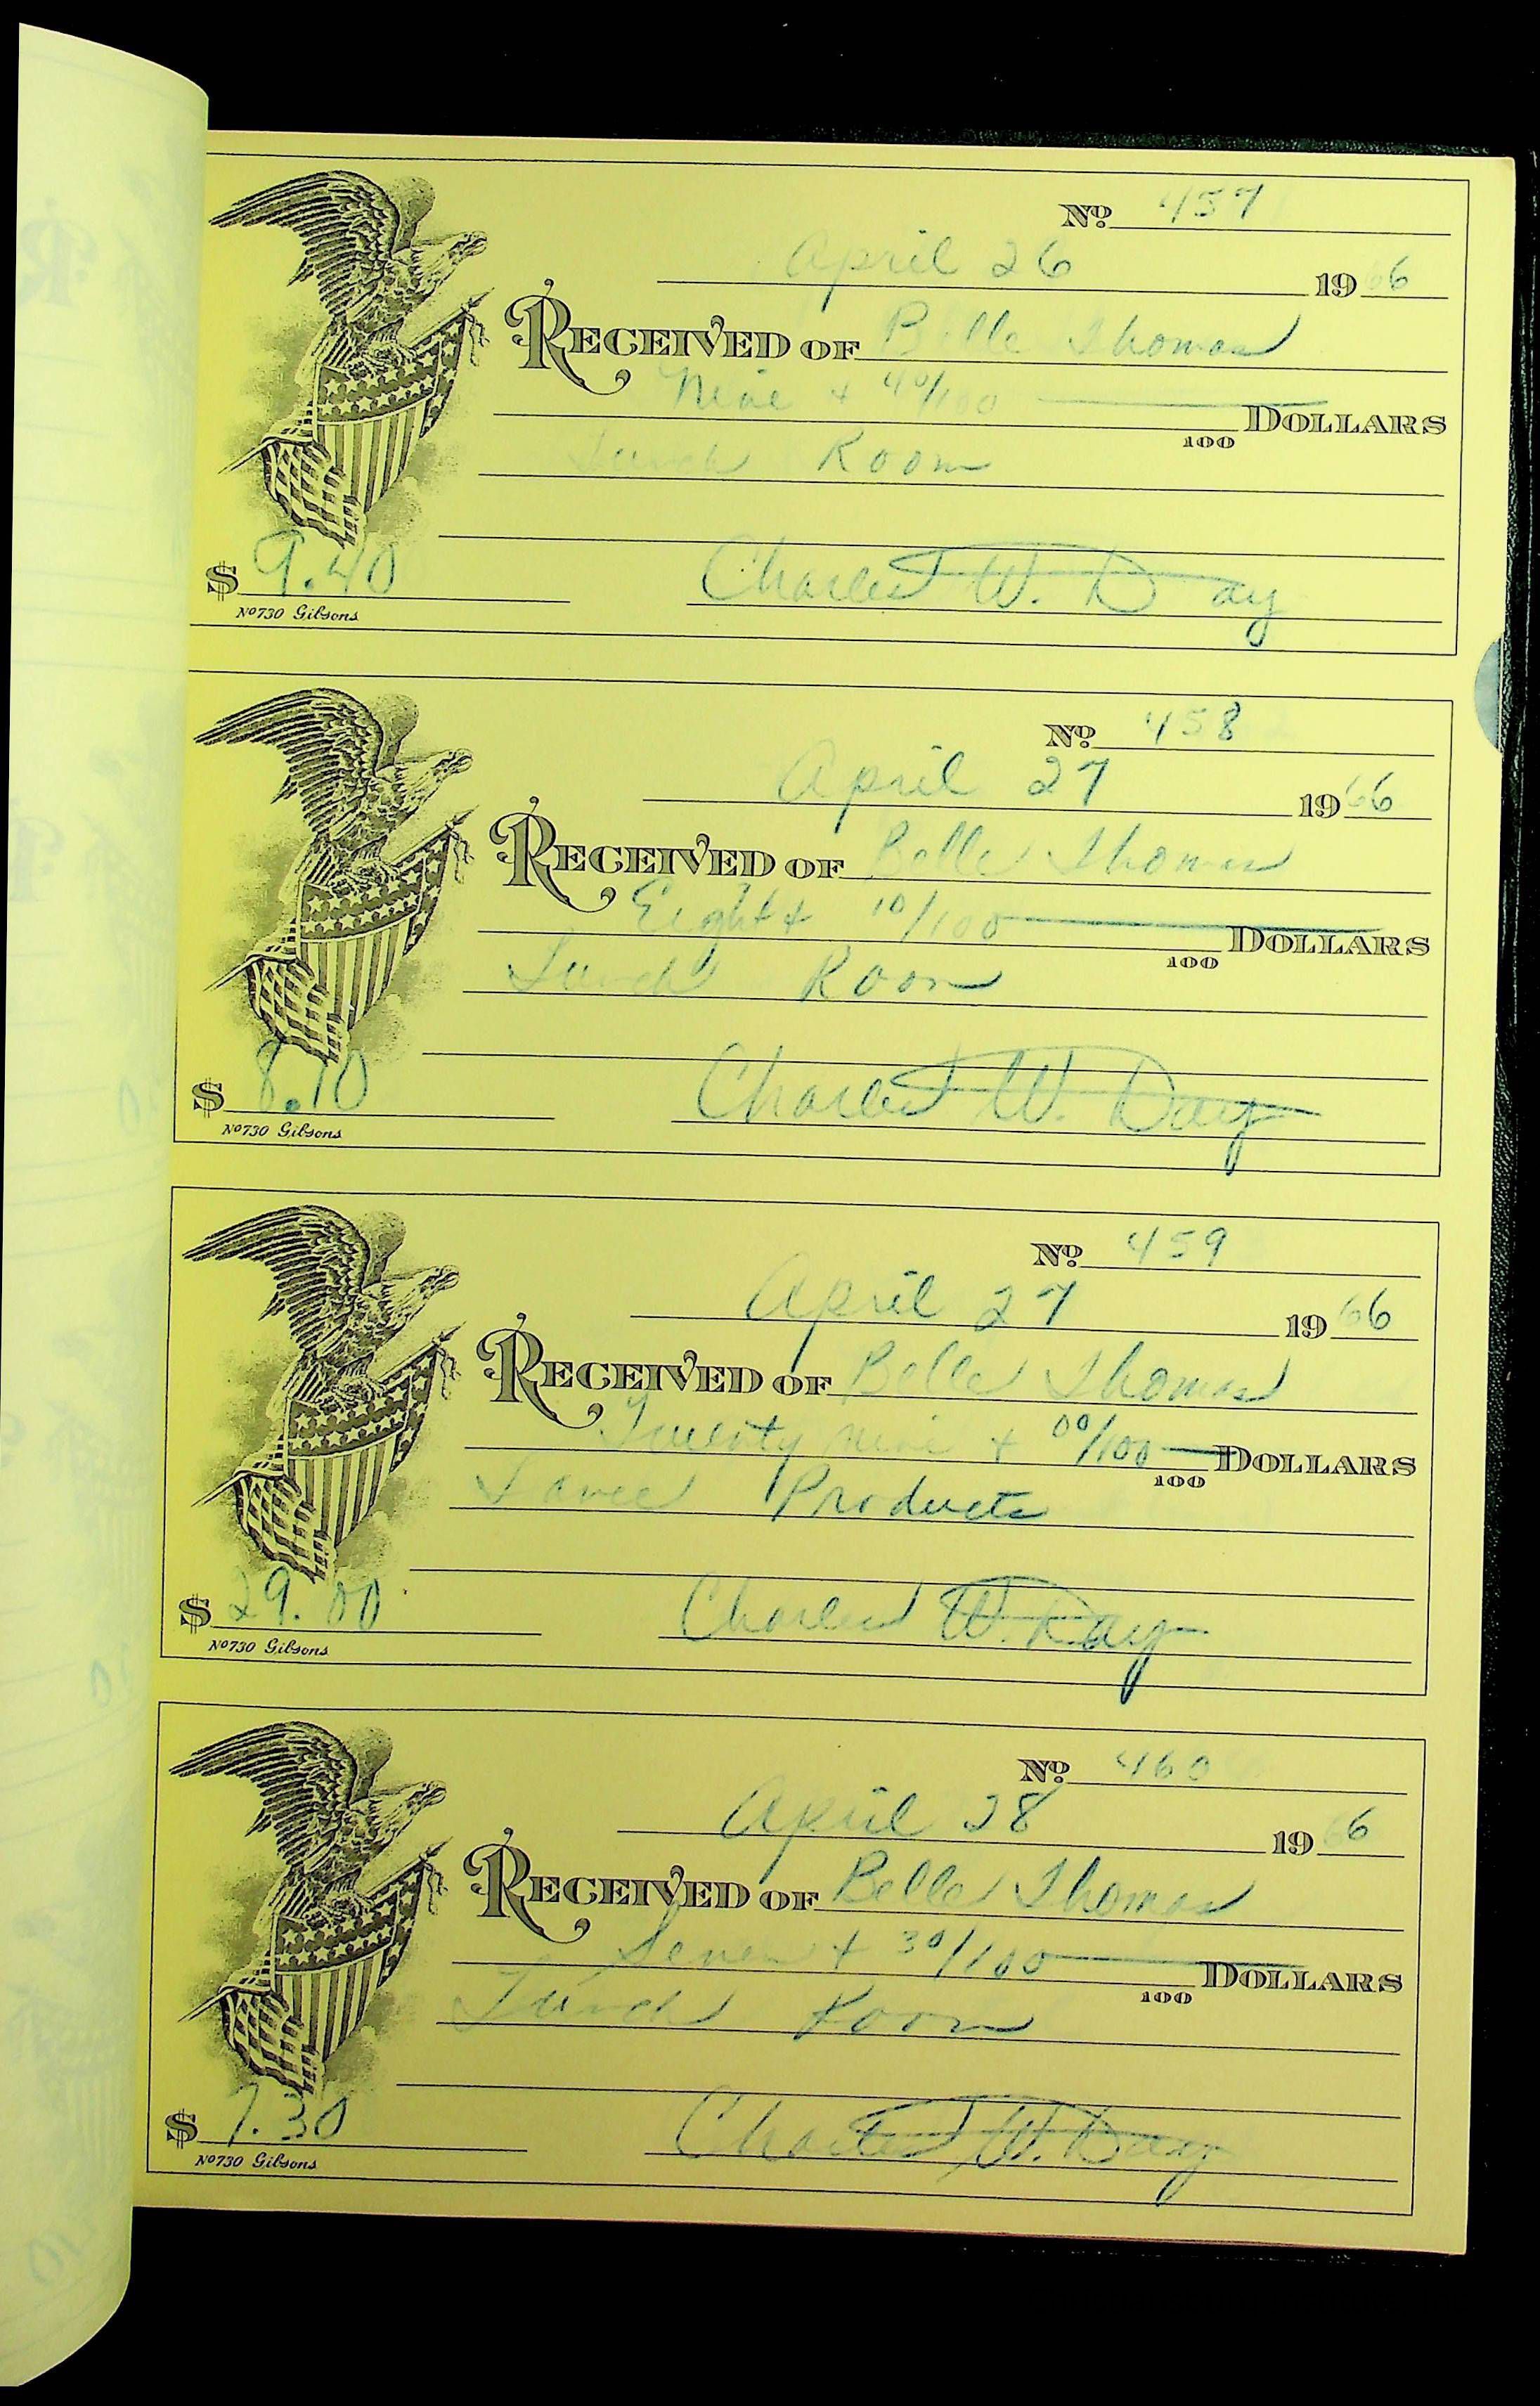 No. 457
April 26 1966
RECEIVED OF Belle Thomas
Nine + 40/100 DOLLARS
100
Lunch Room
$ 9.40 Charles W. Day
No 730 Gibsons
No. 458
April 27 1966
RECEIVED OF Belle Thomas
Eight + 10/100 DOLLARS
100
Lunch Room
$ 8.10 Charles W. Day
No 730 Gibsons
No. 459
April 27 1966
RECEIVED OF Belle Thomas
Twenty nine + 00/100 DOLLARS
100
Products
$ 29.00 Charles W. Day
No 730 Gibsons
No. 460
April 28 1966
RECEIVED OF Belle Thomas
Seven + 30/100 DOLLARS
100
Lunch Room
$ 7.30 Charles W. Day
No 730 Gibsons